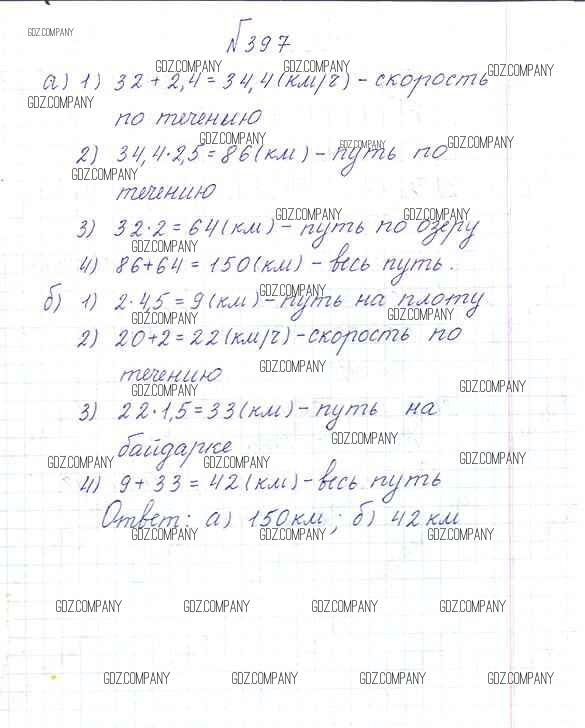 GDZ.COMPANY
№397
GDZ.COMPANY GDZ.COMPANY GDZ.COMPANY
а) 1) 32 + 2,4 = 34,4 (км/ч) - скорость
GDZ.COMPANY
по течению
GDZ.COMPANY GDZ.COMPANY GDZ.COMPANY
2) 34,4·2,5 = 86 (км) - путь по
GDZ.COMPANY
течению
GDZ.COMPANY GDZ.COMPANY
3) 32·2 = 64 (км) - путь по озеру
GDZ.COMPANY
4) 86+64 = 150 (км) - весь путь.
GDZ.COMPANY
б) 1) 2·4,5 = 9 (км) - путь на плоту
GDZ.COMPANY GDZ.COMPANY
2) 20+2 = 22 (км/ч) - скорость по
GDZ.COMPANY
течению
GDZ.COMPANY GDZ.COMPANY
3) 22·1,5 = 33 (км) - путь на
GDZ.COMPANY
байдарке
GDZ.COMPANY GDZ.COMPANY GDZ.COMPANY
4) 9 + 33 = 42 (км) - весь путь
Ответ: а) 150 км; б) 42 км
GDZ.COMPANY GDZ.COMPANY GDZ.COMPANY
GDZ.COMPANY GDZ.COMPANY GDZ.COMPANY GDZ.COMPANY
GDZ.COMPANY GDZ.COMPANY GDZ.COMPANY GDZ.COMPANY